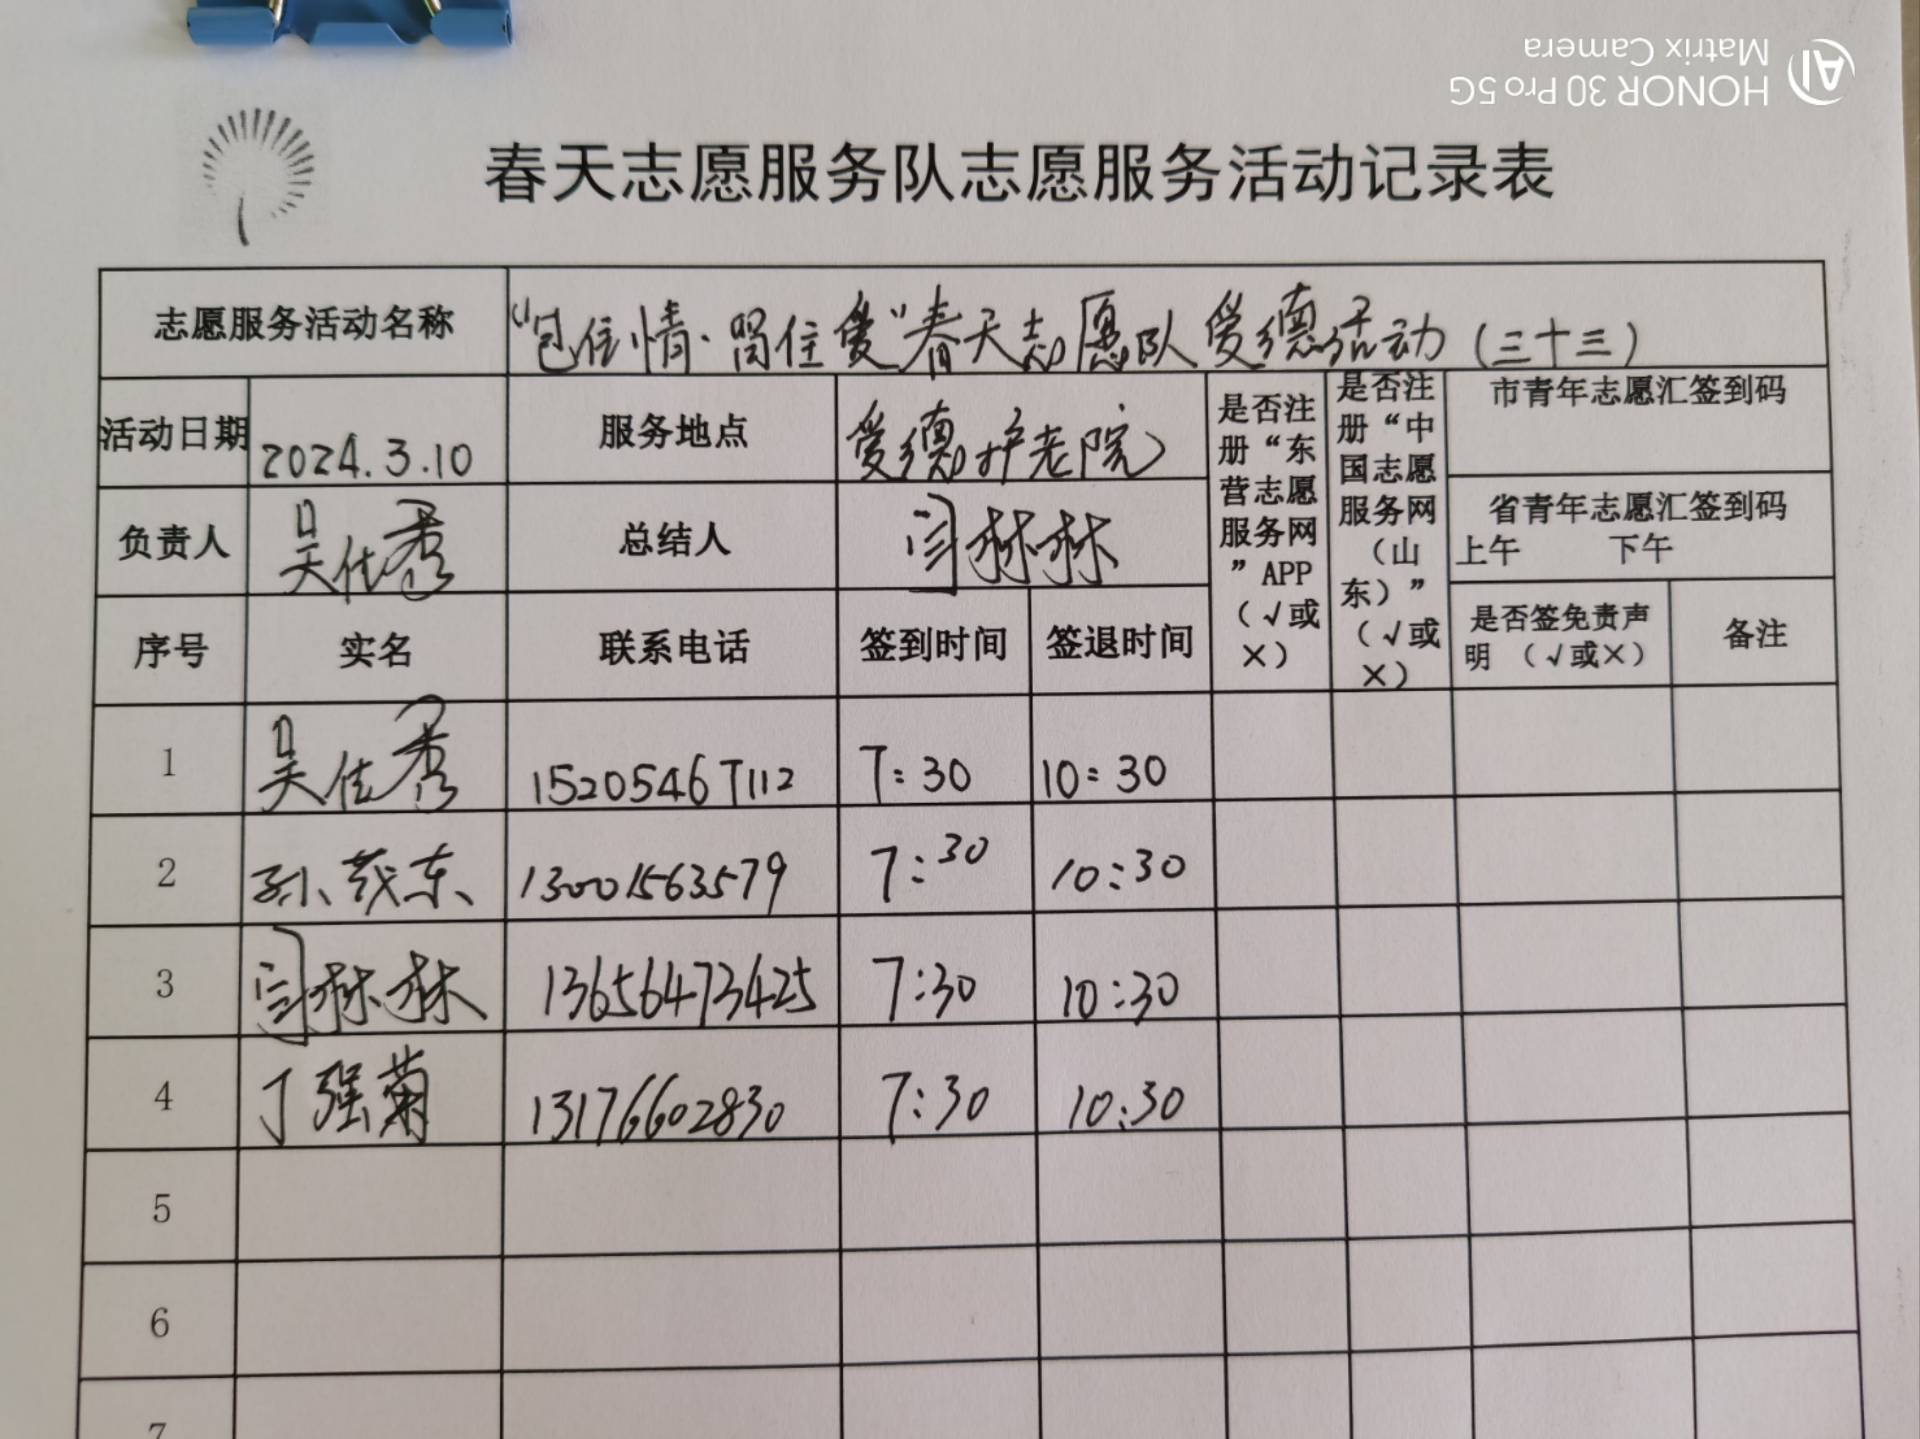 HONOR 30 Pro 5G
Matrix Camera
AI
春天志愿服务队志愿服务活动记录表
志愿服务活动名称 “包住情·留住爱”春天志愿队爱德活动(三十三)
活动日期 2024.3.10 服务地点 爱德护老院
是否注册“东营志愿服务网”APP(√或×)
是否注册“中国志愿服务网(山东)”(√或×)
市青年志愿汇签到码
负责人 吴佳秀 总结人 闫林林
省青年志愿汇签到码
上午 下午
序号 实名 联系电话 签到时间 签退时间 是否签免责声明 (√或×) 备注
1 吴佳秀 15205467112 7:30 10:30
2 孙茂东 13001563579 7:30 10:30
3 闫林林 13656473425 7:30 10:30
4 丁强菊 13176602830 7:30 10:30
5
6
7